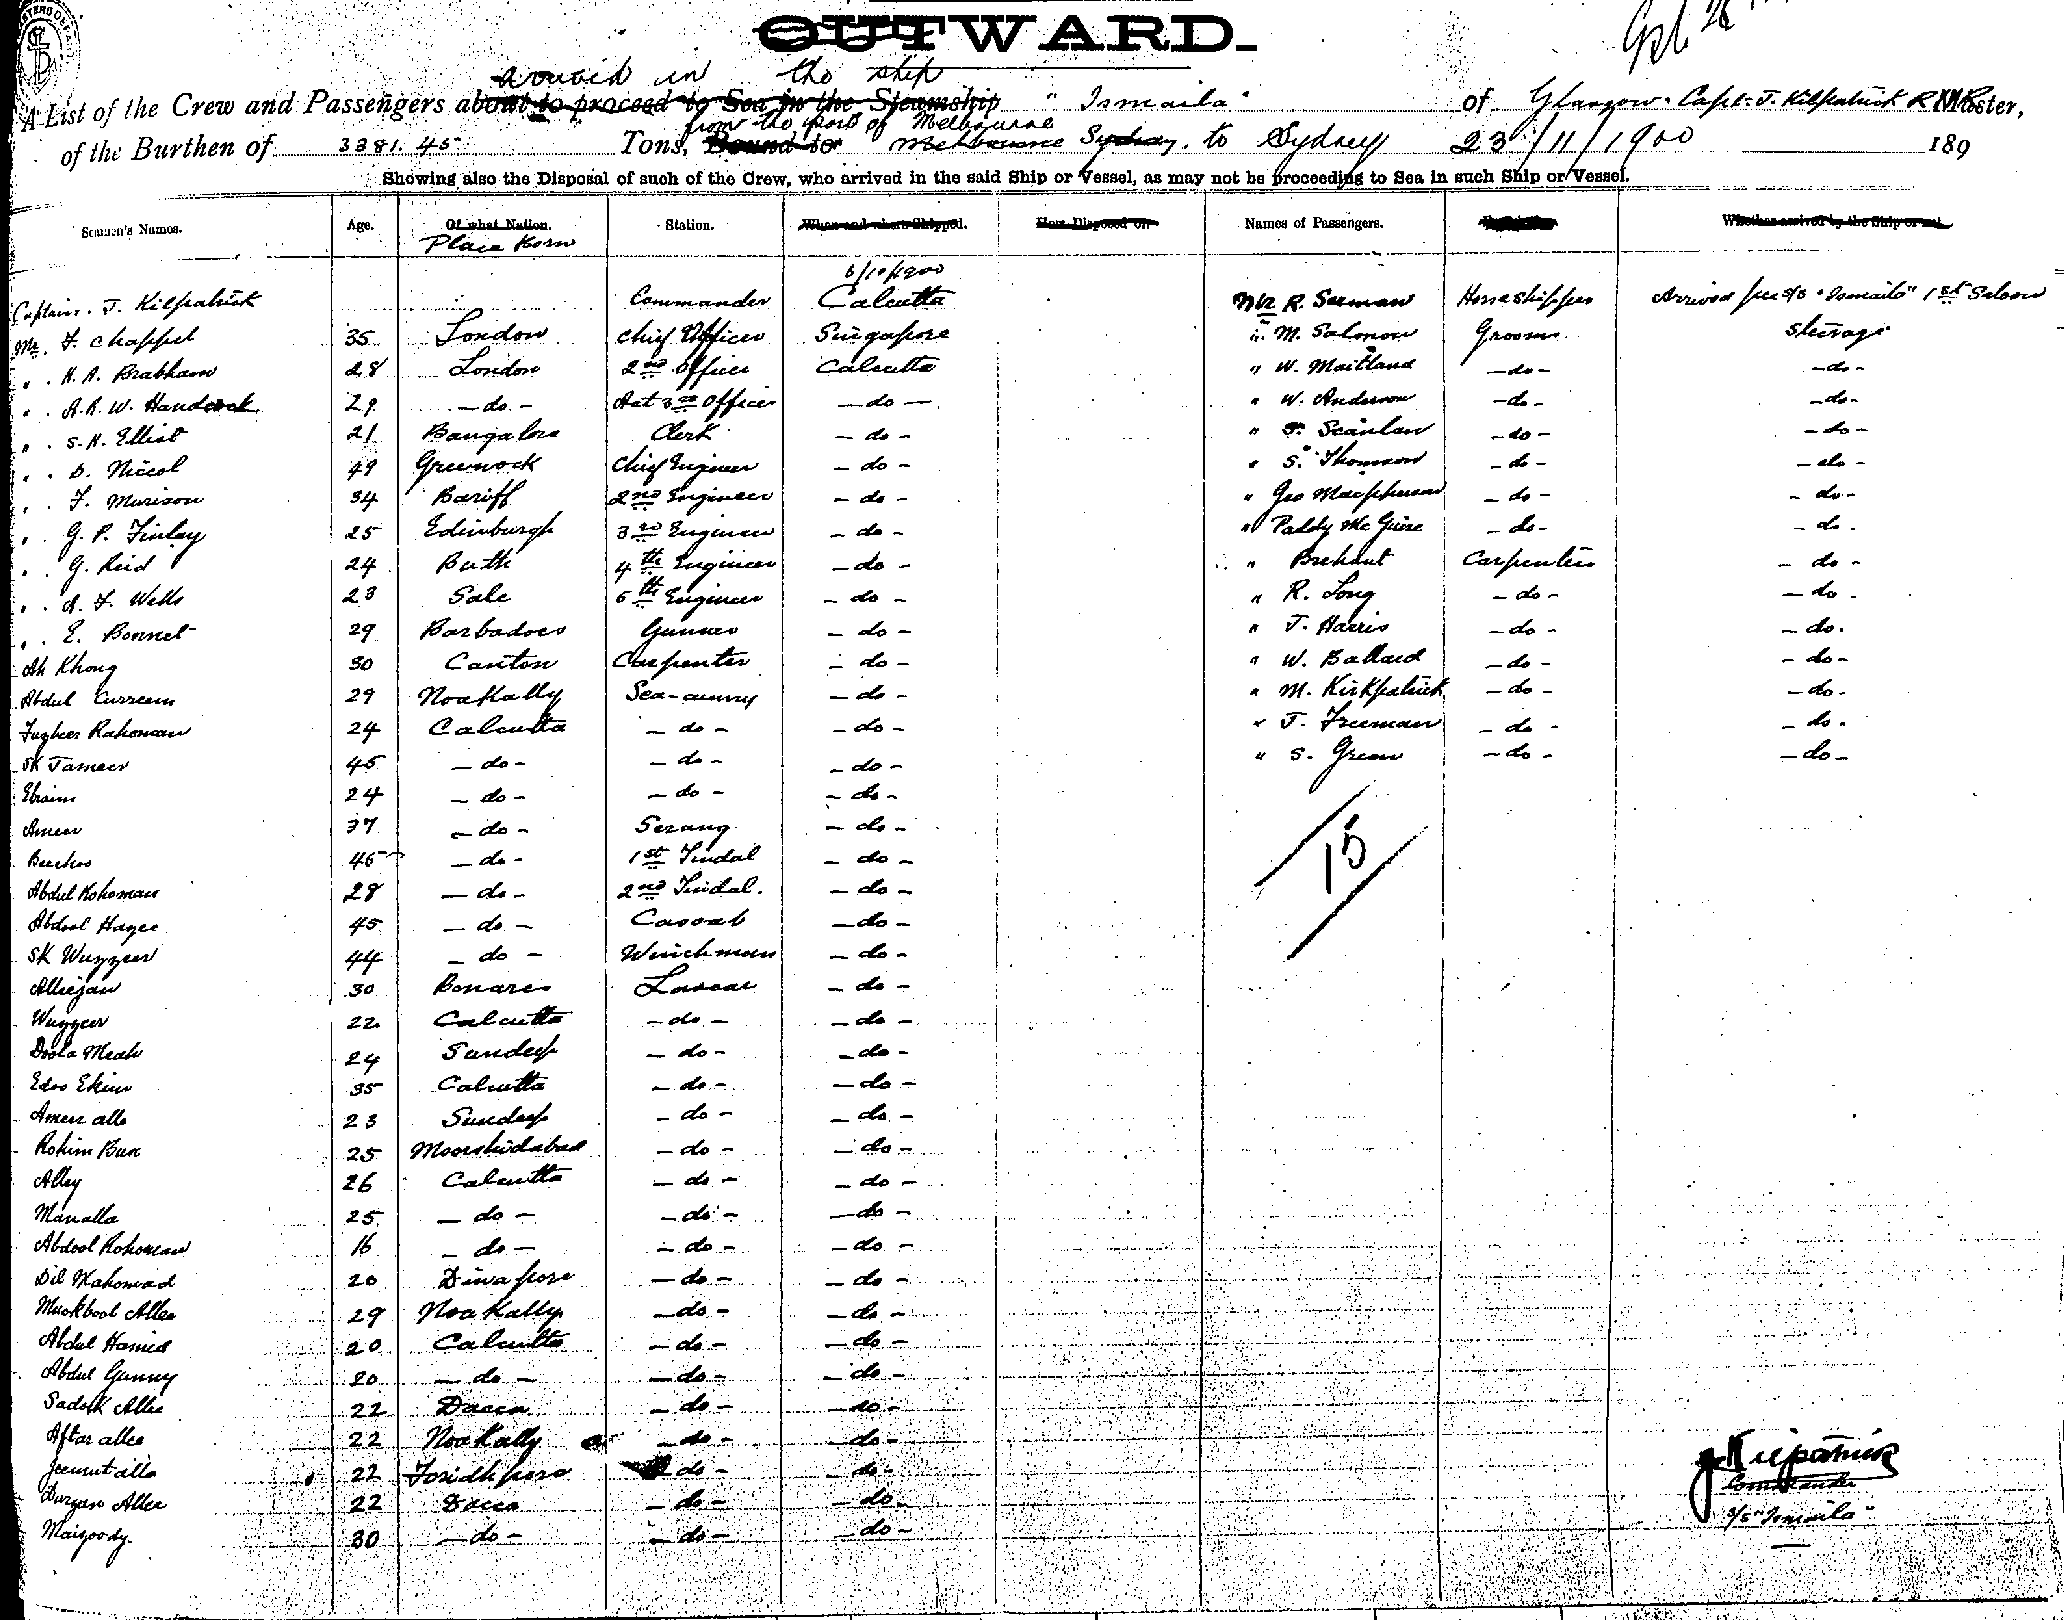 OUTWARD.
arrived in the ship
A List of the Crew and Passengers about to proceed to Sea in the Steamship "Ismaila" of Glasgow. Capt. J. Kilpatrick R.N.R. Master,
from the port of Melbourne
of the Burthen of 3381.45 Tons, Bound to Melbourne Sydney. to Sydney 23/11/1900 189
Showing also the Disposal of such of the Crew, who arrived in the said Ship or Vessel, as may not be proceeding to Sea in such Ship or Vessel.
Seamen's Names. Age. Of what Nation. Station. When and where Shipped. How Disposed of. Names of Passengers. Whether arrived by the Ship or not.
Place Born
6/10/1900
Captain. J. Kilpatrick Commander Calcutta Mr R. Seeman Horseshipper Arrived per s/s "Ismaila" 1st Saloon
Mr. F. Chappel 35 London Chief Officer Singapore " M. Salomon Groom Steerage
" . H. A. Brabham 28 London 2nd Officer Calcutta " W. Maitland - do - - do -
" . A. R. W. Handcock 29 - do - Act 3rd Officer - do - " W. Anderson - do - - do -
" . S. H. Elliot 21 Bangalore Clerk - do - " Scanlan - do - - do -
" . D. Niccol 49 Greenock Chief Engineer - do - " S. Thomson - do - - do -
" . F. Murison 34 Bariff 2nd Engineer - do - " Geo Macpherson - do - - do -
" . G. P. Finlay 25 Edinburgh 3rd Engineer - do - " Paddy McGuire - do - - do -
" . G. Reid 24 Buth 4th Engineer - do - " Brehaut Carpenter - do -
" . A. F. Wells 23 Sale 5th Engineer - do - " R. Long - do - - do -
" . E. Bonnet 29 Barbadoes Gunner - do - " J. Harris - do - - do -
Ah Khong 30 Canton Carpenter - do - " W. Ballard - do - - do -
Abdul Curreem 29 Noakally Sea-cunny - do - " M. Kirkpatrick - do - - do -
Fuzher Rahoman 24 Calcutta - do - - do - " J. Freeman - do - - do -
Sk Jameer 45 - do - - do - - do - " S. Green - do - - do -
Ebraim 24 - do - - do - - do -
Ameer 37 - do - Serang - do -
15
Buchoo 45 - do - 1st Tindal - do -
Abdul Rohoman 28 - do - 2nd Tindal. - do -
Abdool Hagee 45 - do - Cassab - do -
Sk Wuzzeer 44 - do - Winchman - do -
Alliejan 30 Benares Lascar - do -
Wuzzeer 22 Calcutta - do - - do -
Doola Meah 24 Sundeep - do - - do -
Edoo Ekim 35 Calcutta - do - - do -
Ameer alle 23 Sundeep - do - - do -
Rohim Bux 25 Moorshidabad - do - - do -
Alley 26 Calcutta - do - - do -
Manalla 25 - do - - do - - do -
Abdool Rohoman 16 - do - - do - - do -
Dil Mahomad 20 Dinapore - do - - do -
Muckbool Allee 29 Noakally - do - - do -
Abdul Hamid 20 Calcutta - do - - do -
Abdul Gunny 20 - do - - do - - do -
Sadock Allee 22 Dacca - do - - do -
Aftar allee 22 Noakally - do - - do -
Jeemut alle 22 Foridhpore - do - - do -
Durgan Allee 22 Dacca - do - - do -
Maigoody. 30 - do - - do - - do -
J. Kilpatrick
Commander
s/s "Ismaila"